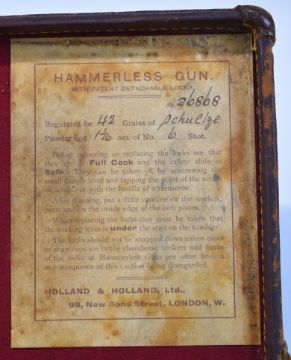 HAMMERLESS GUN.
WITH PATENT DETACHABLE LOCKS.
No 26868
Regulated for 42 Grains of Schultze
Powder and 1 1/16 ozs. of No. 6 Shot.
Before removing or replacing the locks see that
they are at Full Cook and the safety slide at
Safe. They can be taken off by unscrewing the
small thumb lever and tapping the point of the action
with the handle of a turnscrew.
After cleaning, put a little vaseline on the working
parts and on the inside edge of the lock plates.
When replacing the locks care must be taken that
the cocking lever is under the stud on the tumbler.
The locks should not be snapped down unless cases
or snap caps are in the chambers; strikers and
of the locks of Hammerless Guns are often broken
in consequence of this caution being disregarded.
HOLLAND & HOLLAND, Ltd.,
98, New Bond Street, LONDON, W.